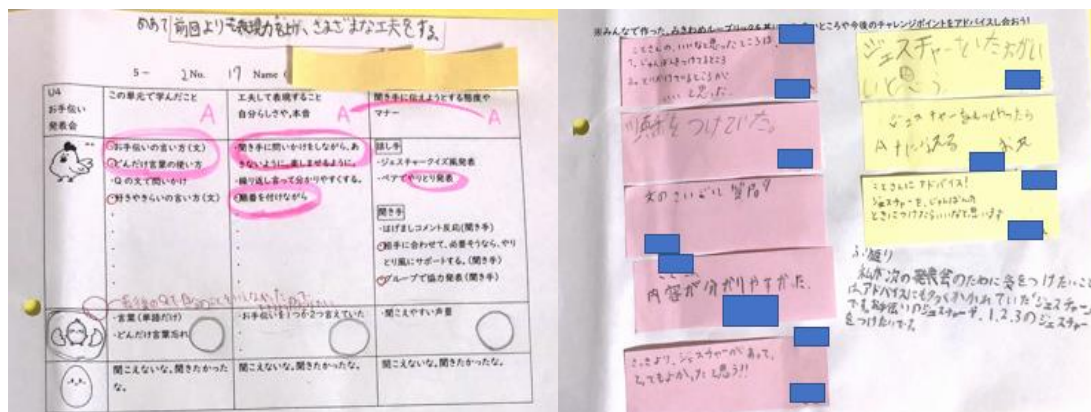 めあて 前回よりも表現力を上げ、さまざまな工夫をする。
5- 2 No. 17 Name (
U4
お手伝い
発表会
この単元で学んだこと
A
工夫して表現すること
自分らしさや,本音
A
聞き手に伝えようとする態度や
マナー
A
・お手伝いの言い方(文)
・どんだけ言葉の使い方
・Qの文で問いかけ
・好きやきらいの言い方(文)
・聞き手に問いかけをしながら、あ
きないように。楽しませるように。
・繰り返し言って分かりやすくする。
・順番を付けながら
話し手
・ジェスチャークイズ風発表
・ペアでやりとり発表
聞き手
・はげましコメント反応(聞き手)
・相手に合わせて、必要そうなら、やり
とり風にサポートする。(聞き手)
・グループで協力発表(聞き手)
・言葉(単語だけ)
・どんだけ言葉忘れ
・お手伝いを1つか2つ言えていた
・聞こえやすい声量
聞こえないな。聞きたかった
な。
聞こえないな。聞きたかったな。
聞こえないな。聞きたかったな。
ことさんの、いいなと思ったところは、
1. じゅんばんをつけてるところ
いいと思った。
順番をつけていた。
文のさいごに質問
内容が分かりやすかった。
さっきより、ジェスチャーがあって、
とてもよかったと思う!!
ジェスチャーをいた方がいい
いと思う
ジェスチャーをもっとやったら
ことさんにアドバイス!
ジェスチャーを、じゅんばんの
ときにつけたらいいなと思います
ふり返り
私が次の発表会のために気をつけたいこと
は、アドバイスにもたくさんかかれていた「ジェスチャー」
です。お手伝いのジェスチャーや、1.2.3のジェスチャー
をつけたいです。